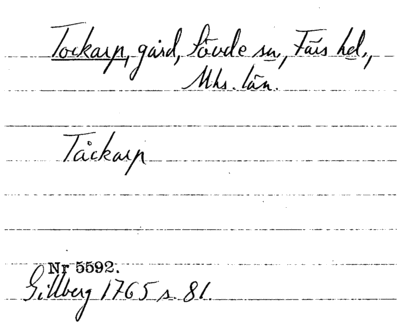 Tockarp, gård, Sövde sn, Färs hd.,
Mhs. län.
Tåckarp
Nr 5592.
Gillberg 1765 s. 81.